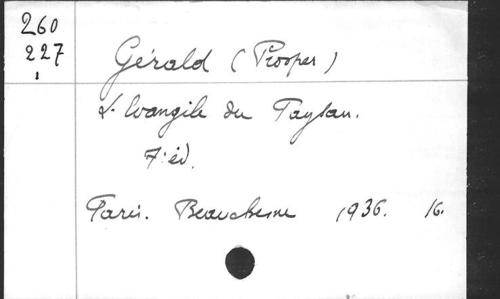 260
227
Gérald (Prosper)
L'Evangile du Paysan.
7e éd.
Paris. Beauchesne 1936. 16.